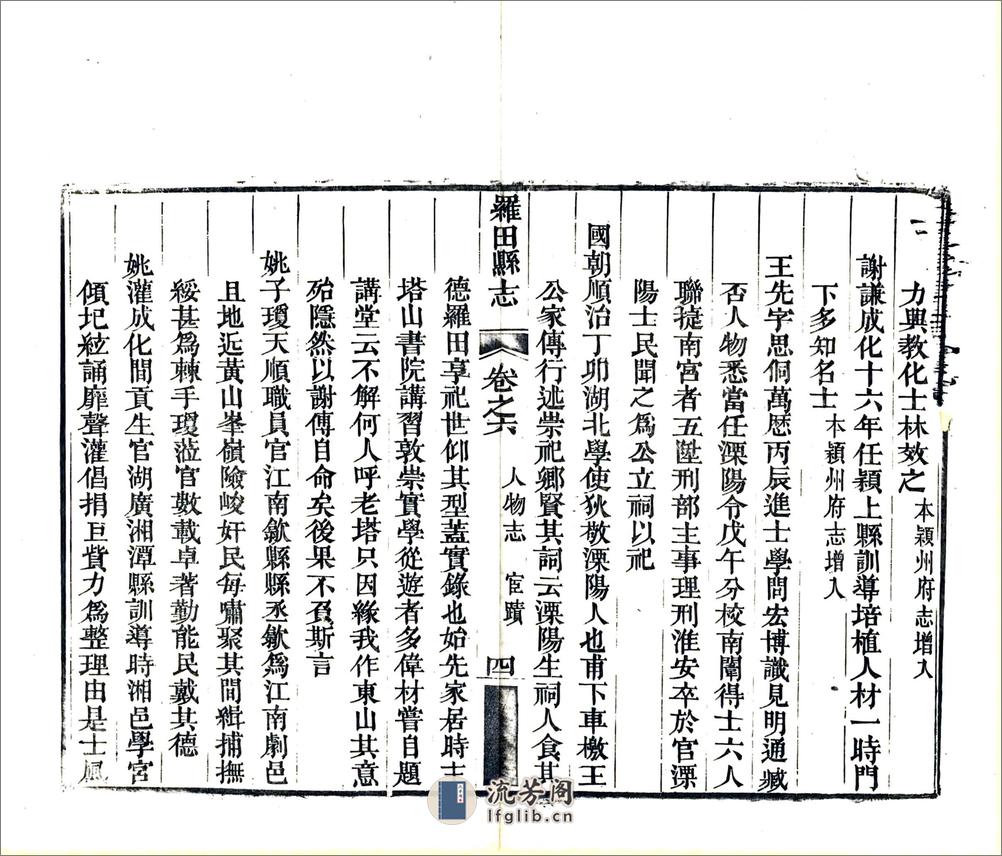 力興教化士林效之本潁州府志增入
謝謙成化十六年任潁上縣訓導培植人材一時門
下多知名士本潁州府志增入
王先字思侗萬厯丙辰進士學問宏博識見明通臧
否人物悉當任溧陽令戊午分校南闈得士六人
聯捷南宮者五陞刑部主事理刑淮安卒於官溧
陽士民聞之爲公立祠以祀
國朝順治丁卯湖北學使狄敬溧陽人也甫下車檄王
公家傳行述崇祀鄉賢其詞云溧陽生祠人食其
羅田縣志 卷之六 人物志 宦蹟 四
德羅田享祀世仰其型蓋實錄也始先家居時主
塔山書院講習敦崇實學從遊者多偉材嘗自題
講堂云不解何人呼老塔只因緣我作東山其意
殆隱然以謝傳自命矣後果不負斯言
姚子瓊天順職員官江南歙縣縣丞歙爲江南劇邑
且地近黃山峯嶺險峻奸民每嘯聚其間緝捕撫
綏甚爲棘手瓊蒞官數載卓著勤能民戴其德
姚灌成化間貢生官湖廣湘潭縣訓導時湘邑學宮
傾圯絃誦靡聲灌倡捐巨貲力爲整理由是士風
流芳阁
lfglib.cn